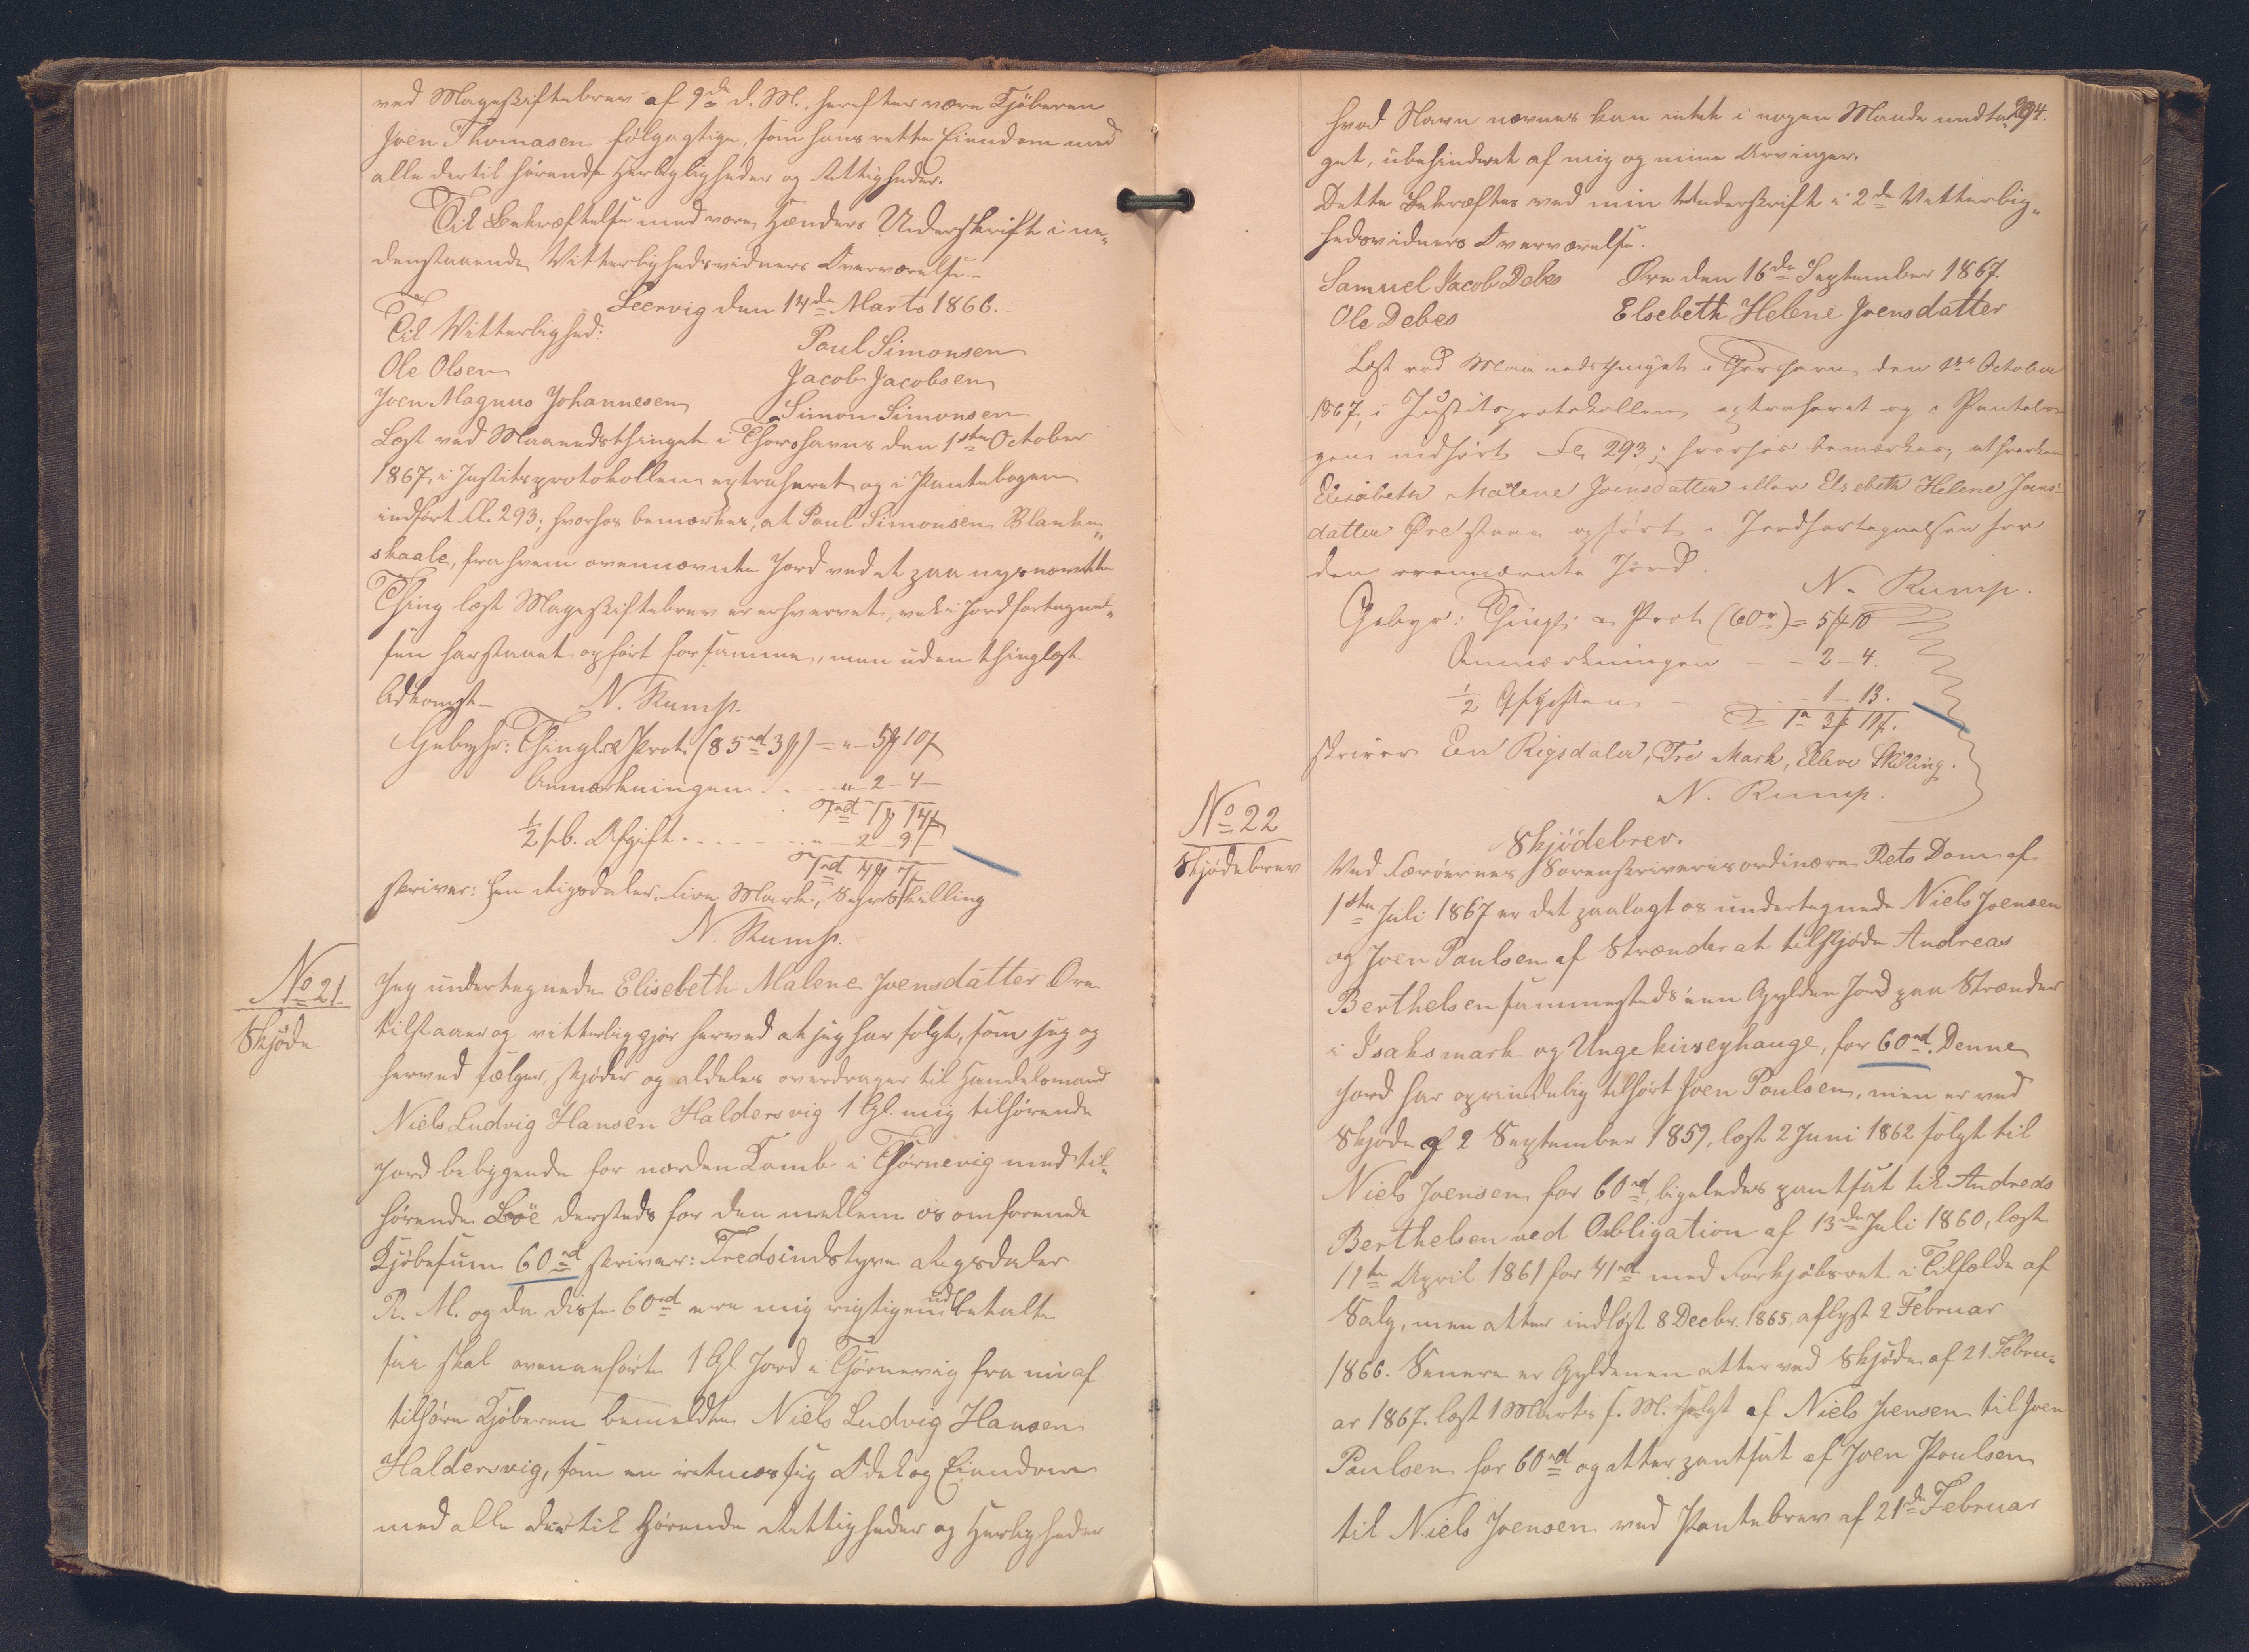 ved Mageskiftebrev af 9de d. M. herefter være Kjöberen
Joen Thomasen følgagtige, som hans rette Eiendom med
alle dertil hørende Herligheder og Rettigheder.
Til Bekræftelse med vore Hænders Underskrift i ne„
denstaaende Vitterlighedsvidners Overværelse.
Leervig den 14de Marts 1866.
Til Vitterlighed:
Paul Simonsen
Ole Olsen
Jacob Jacobsen
Joen Magnus Johannesen
Simon Simonsen
Læst ved Maanedsthinget i Thorshavns den 1ste October
1867, i Justitsprotokollen extraheret og i Pantebogen
indført Fl. 293; hvorhos bemærkes, at Poul Simonsen Blanken„
skaale, fra hvem ovennævnte Jord ved et paa nysnævnte
Thing læst Mageskiftebrev er erhvervet, vel i Jordfortegnel„
sen har staaet opført for samme, men uden thinglæst
Adkomst.
N. Rump.
Gebyhr: Thingl. & Prot. (85rd 3ꝑ) = „ 5ꝑ 10ſ
Anmærkningen . . . „ 2 - 4 -
1rd 1ꝑ 14ſ
½ pb. Afgift . . . . . „ 2 9ſ
1rd 4ꝑ 7ſ
skriver: Een Rigsdaler, Fire Mark, Syv Skilling
N. Rump.
No 21.
Skjøde
Jeg undertegnede Elisebeth Malene Joensdatter Øre
tilstaaer og vitterliggjør herved at jeg har solgt, som jeg og
herved sælger, skjøder og aldeles overdrager til Handelsmand
Niels Ludvig Hansen Haldersvig 1 Gl. mig tilhørende
Jord beliggende for norden Kamb i Thjørnevig med til„
hørende Böe dersteds for den mellem os omforenede
Kjøbesum 60rd skriver: Tredsindstyve Rigsdaler
R. M. og da disse 60rd ere mig rigtigen udbetalte
saa skal ovenanførte 1 Gl. Jord i Tjørnevig fra nu af
tilhøre Kjøberen bemeldte Niels Ludvig Hansen
Haldersvig, som en Odel og Eiendom
med alle dertil hørende Rettigheder og Herligheder
294.
hvad Navn nævnes kan intet i nogen Maade undta„
get, ubehindret af mig og mine Arvinger.
Dette Bekræftes ved min Underskrift i 2de Vitterlig„
hedsvidners Overværelse.
Samuel Jacob Debes
Øre den 16de September 1867.
Ole Debes
Elsebeth Helene Joensdatter
Læst ved Maanedsthinget i Thorshavn den 1ste October
1867, i Justitsprotokollen extraheret og i Pantebo
gen indført Fl. 293; hvorhos bemærkes, at hverken
Elisabeth Malene Joensdatter eller Elsebeth Helene Joens-
datter Øre staae opført i Jordfortegnelsen for
den ovennævnte Jord.
N. Rump.
Gebyr: Thingl. & Prot (60rd) = 5ꝑ 10
Anmærkningen - - 2 - 4.
½ Afgiften - - 1 - 13.
= 1rd 3ꝑ 11ſ.
skriver Een Rigsdaler, Tre Mark, Elleve Skilling.
N. Rump.
No 22
Skjødebrev
Skjödebrev.
Ved Færöernes Sorenskriveris ordinære Rets Dom af
1ste Juli 1867 er det paalagt os undertegnede Niels Joensen
og Joen Paulsen af Strænder at tilskjøde Andreas
Berthelsen sammesteds een Gylden Jord paa Strænder
i Isaksmark og Ungekirseyhauge, for 60rd. Denne
Jord har oprindelig tilhørt Joen Paulsen, men er ved
Skjøde af 2 September 1859, læst 2 Juni 1862 solgt til
Niels Joensen for 60rd, ligeledes pantsat til Andreas
Berthelsen ved Obligation af 13de Juli 1860, læst
11te April 1861 for 41rd med Forkjøbsret i Tilfælde af
Salg, men atter indløst 8 Decbr. 1865, aflyst 2 Februar
1866. Senere er Gyldenen atter ved Skjøde af 21 Febru„
ar 1867, læst 1 Marts s. M. solgt af Niels Joensen til Joen
Paulsen for 60rd og atter pantsat af Joen Poulsen
til Niels Joensen ved Pantebrev af 21de Februar